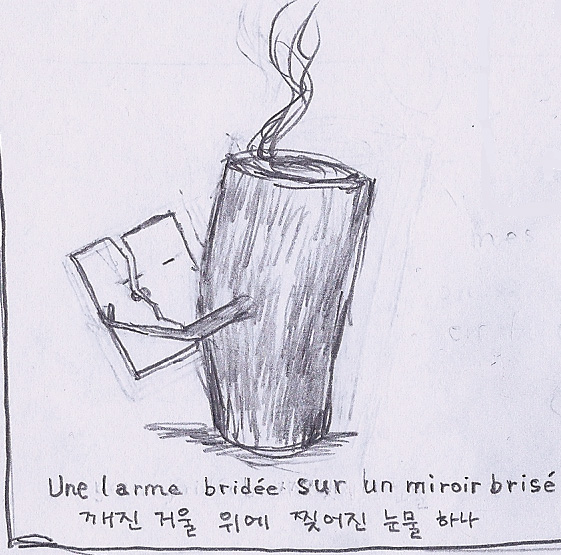 Une larme bridée sur un miroir brisé
깨진 거울 위에 찢어진 눈물 하나